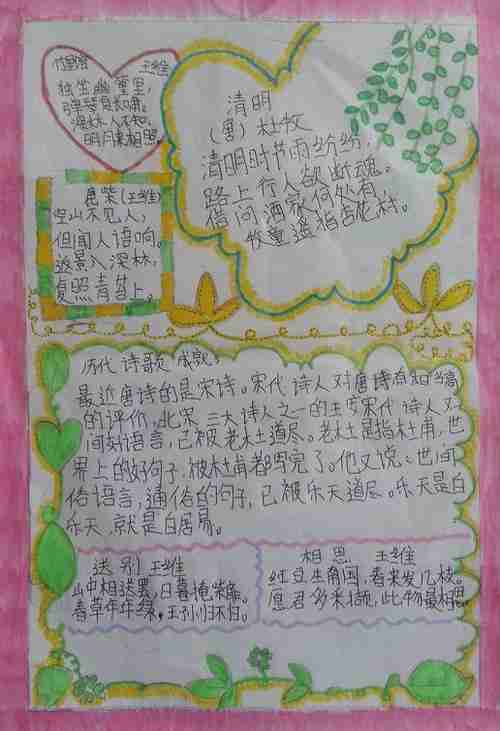 竹里馆 王维
独坐幽篁里,
弹琴复长啸。
深林人不知,
明月来相照。
清明
(唐)杜牧
清明时节雨纷纷,
路上行人欲断魂。
借问酒家何处有
牧童遥指杏花村。
鹿柴(王维)
空山不见人,
但闻人语响。
返景入深林,
复照青苔上。
历代 诗歌 成就。
最近唐诗的是宋诗。宋代 诗人 对唐诗有相当高
的评价,北宋 三大诗人之一的王安宋代 诗人 对
间好语言,已被 老杜道尽。老杜是指杜甫,世
界上的好句子,被杜甫都写完了。他又说:世间
俗语言,通俗的句子,已被乐天道尽。乐天是白
乐天,就是白居易。
送别 王维
山中相送罢,日暮掩柴扉。
春草年年绿,王孙归不归。
相思 王维
红豆生南国,春来发几枝。
愿君多采撷,此物最相思。